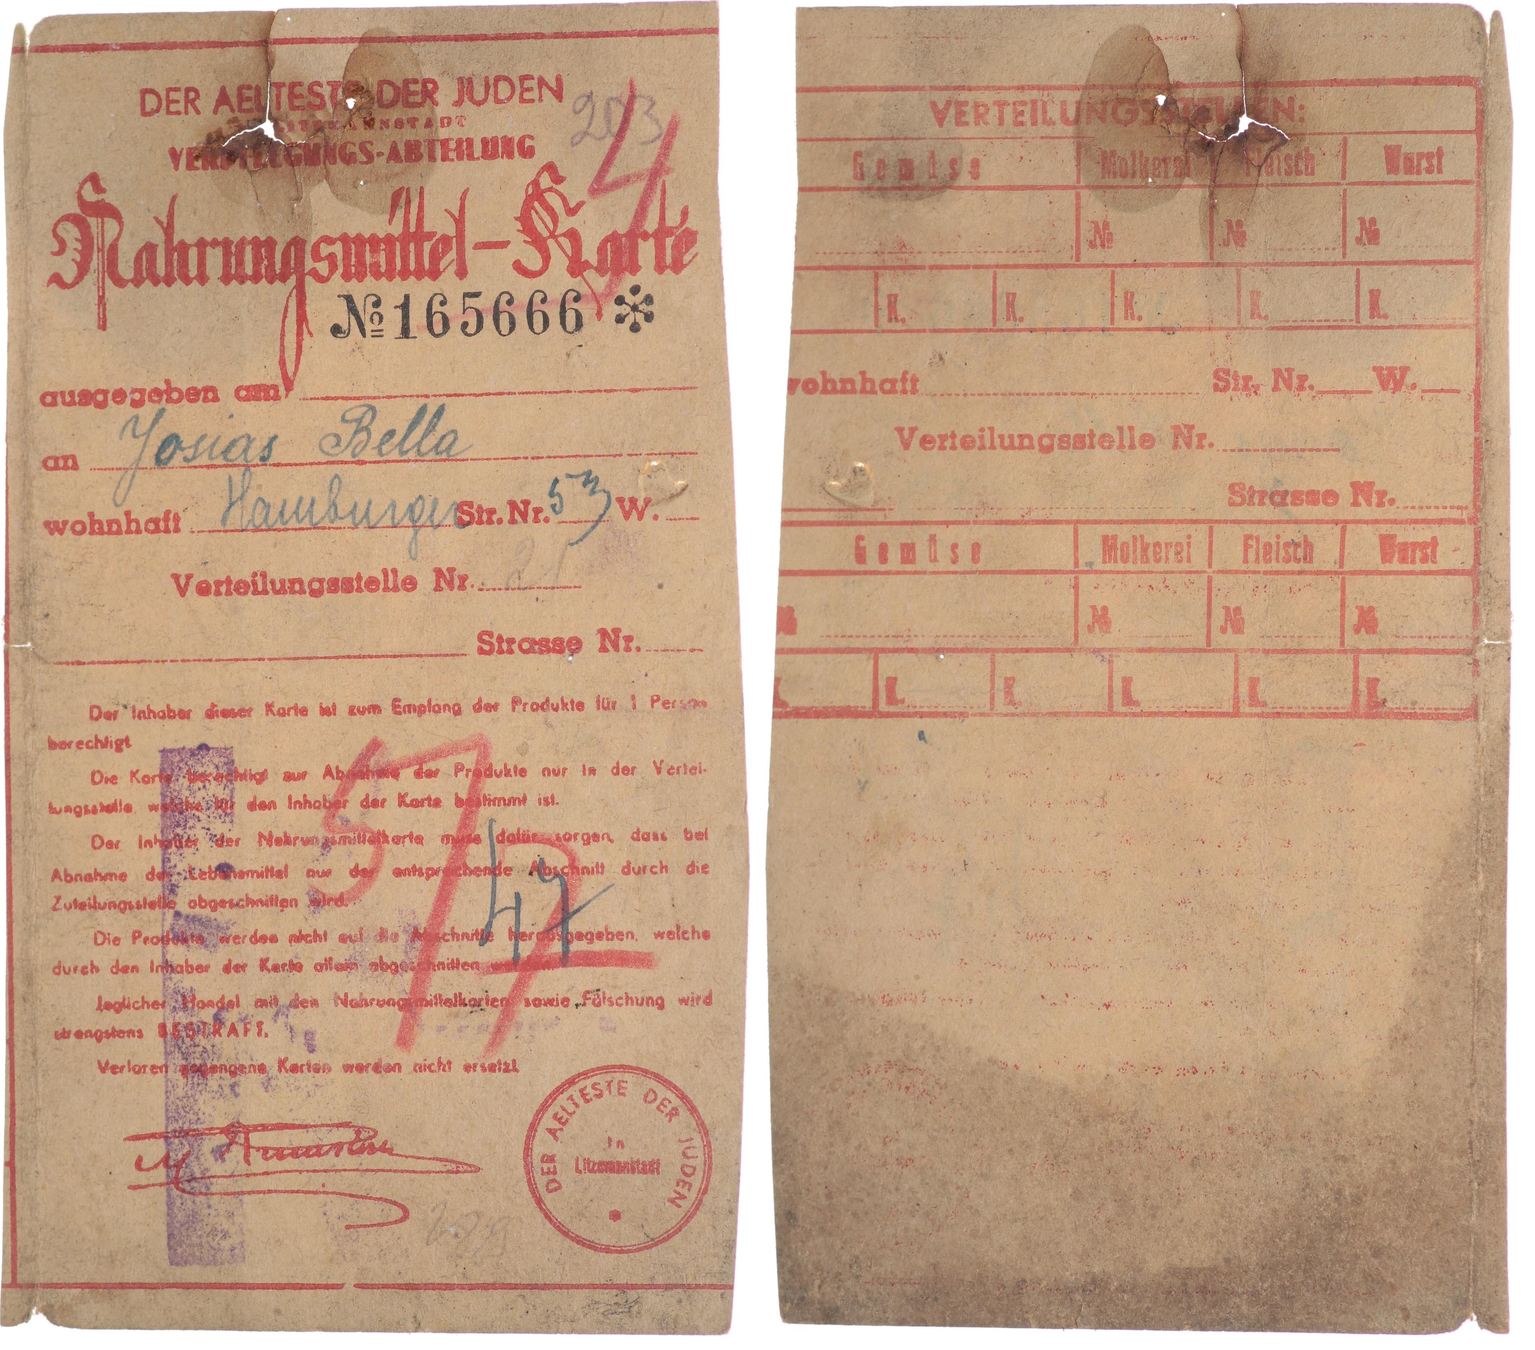 DER AELTESTE DER JUDEN
203
4
VERPFLEGUNGS-ABTEILUNG
Nahrungsmittel-Karte
№ 165666 *
ausgegeben am
an Josias Bella
wohnhaft Hamburger Str. Nr. 53 W.
Verteilungsstelle Nr. 21
Strasse Nr.
Der Inhaber dieser Karte ist zum Empfang der Produkte für 1 Person
berechtigt
Die Karte berechtigt zur Abnahme der Produkte nur in der Vertei-
lungsstelle, welche für den Inhaber der Karte bestimmt ist.
Der Inhaber der Nahrungsmittelkarte muss dafür sorgen, dass bei
Abnahme der Lebensmittel nur der entsprechende Abschnitt durch die
Zuteilungsstelle abgeschnitten wird.
Die Produkte werden nicht auf die Abschnitte herausgegeben, welche
durch den Inhaber der Karte allein abgeschnitten werden.
Jeglicher Handel mit den Nahrungsmittelkarten sowie Fälschung wird
strengstens BESTRAFT.
Verloren gegangene Karten werden nicht ersetzt
47
DER AELTESTE DER JUDEN
in
Litzmannstadt
VERTEILUNGSSTELLEN:
Gemüse Molkerei Fleisch Wurst
№ № №
K. K. K. K. K.
wohnhaft Str. Nr. W.
Verteilungsstelle Nr.
Strasse Nr.
Gemüse Molkerei Fleisch Wurst
№ № № №
K. K. K. K. K.